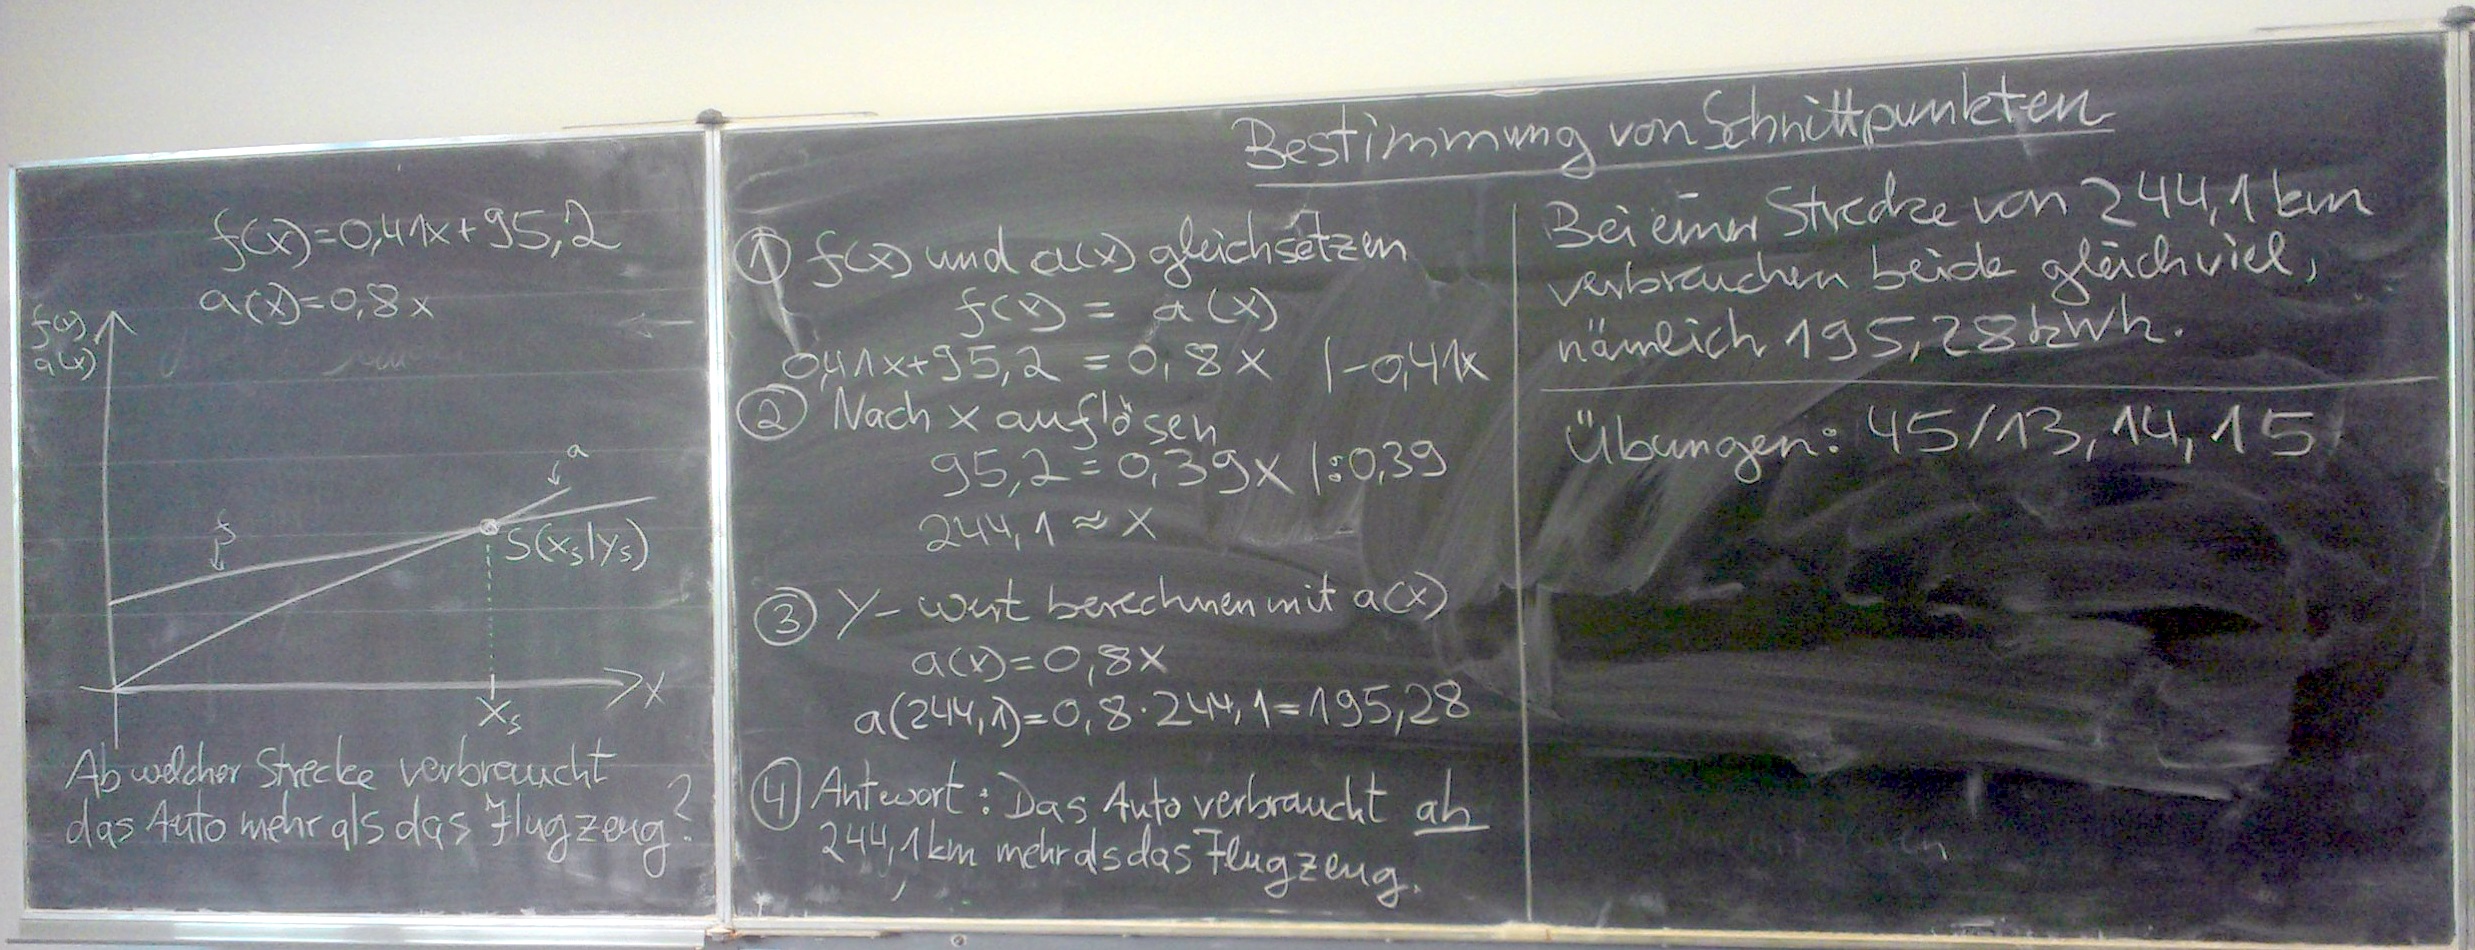 f(x)=0,41x+95,2
a(x)=0,8x
f(x)
a(x)
a
f
S(xₛ|yₛ)
x
xₛ
Ab welcher Strecke verbraucht
das Auto mehr als das Flugzeug?
Bestimmung von Schnittpunkten
① f(x) und a(x) gleichsetzen
f(x) = a(x)
0,41x+95,2 = 0,8x |-0,41x
② Nach x auflösen
95,2=0,39x |:0,39
244,1≈x
③ Y-Wert berechnen mit a(x)
a(x)=0,8x
a(244,1)=0,8·244,1=195,28
④ Antwort: Das Auto verbraucht ab
244,1km mehr als das Flugzeug.
Bei einer Strecke von 244,1km
verbrauchen beide gleichviel,
nämlich 195,28kWh.
Übungen: 45/13,14,15